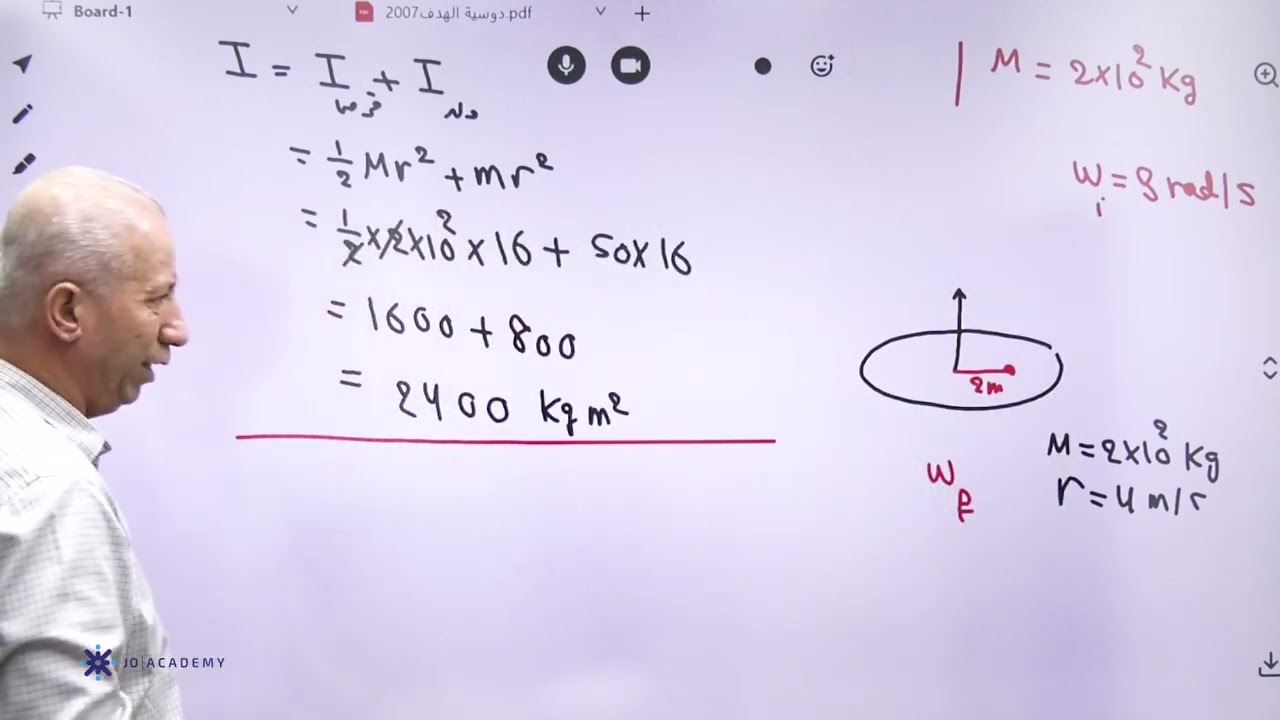 Board-1
دوسية الهدف2007.pdf
I = I قرص + I ولد
= 1/2 Mr² + mr²
= 1/2 × 2×10² × 16 + 50×16
= 1600 + 800
= 2400 kg m²
M = 2×10² Kg
ω_i = 8 rad/s
2m
ω_f
M = 2×10² Kg
r = 4 m/s
JO|ACADEMY